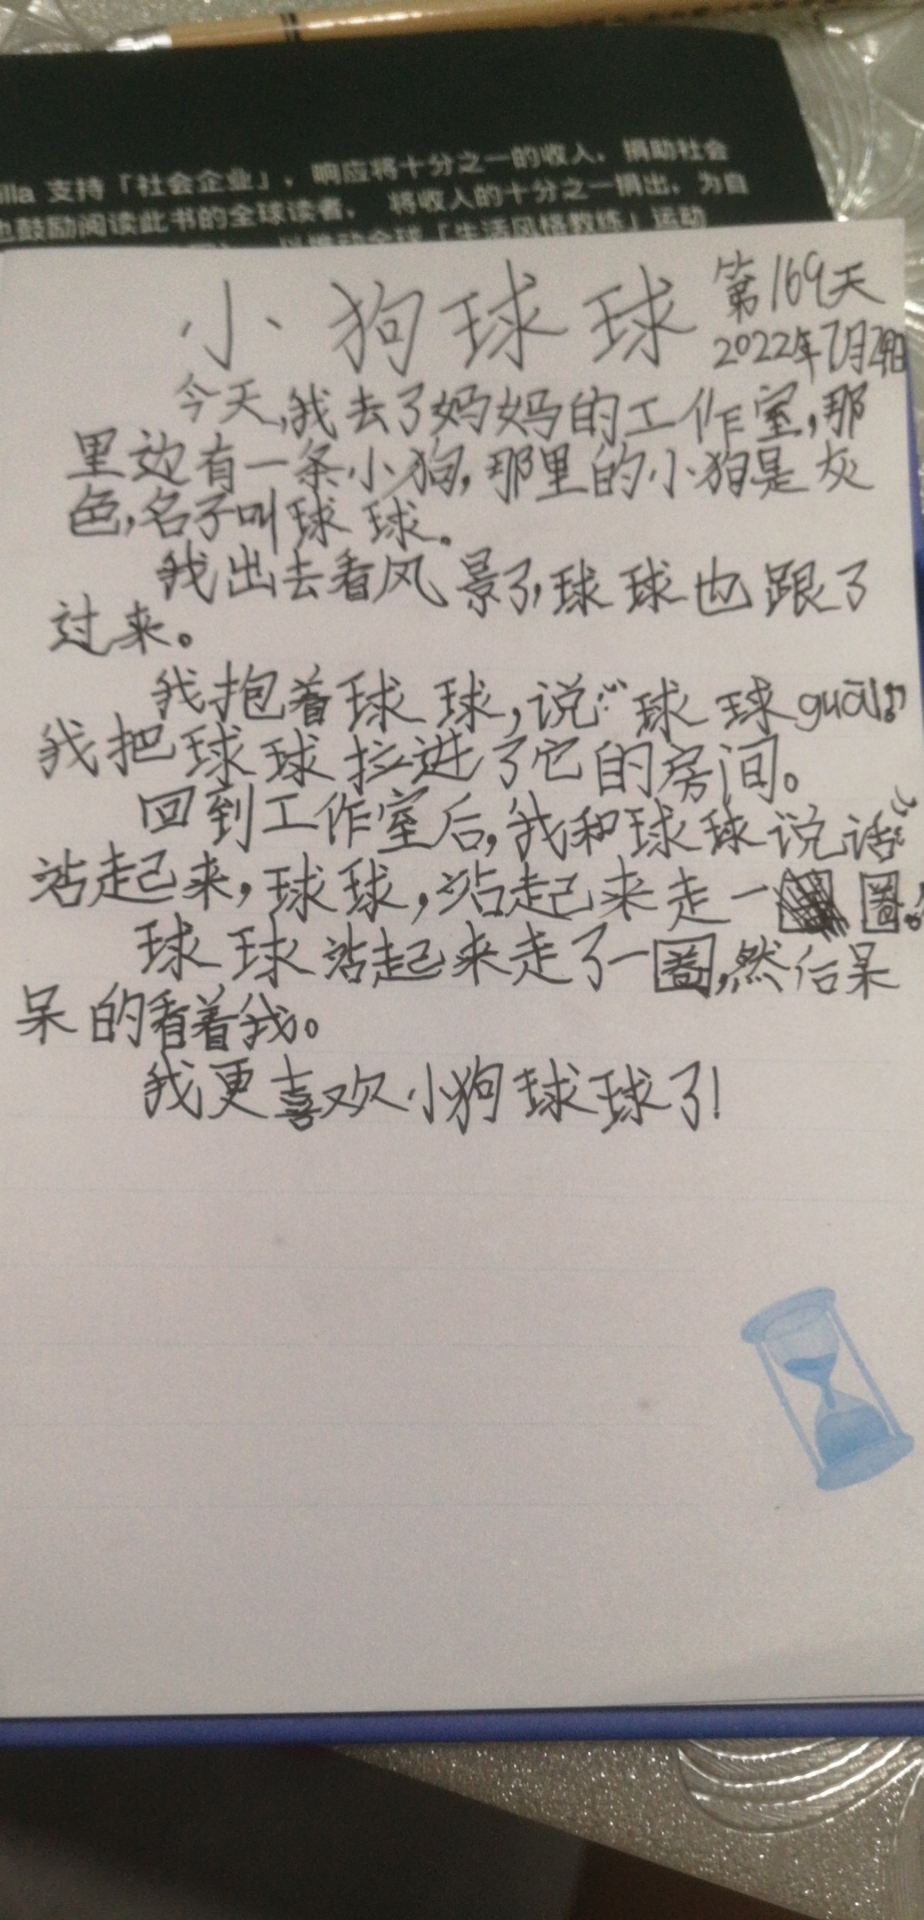 支持「社会企业」，响应将十分之一的收入，捐助社会
也鼓励阅读此书的全球读者， 将收入的十分之一捐出，为自
全球「生活风格教练」运动
小狗球球
第169天
2022年7月29日
今天,我去了妈妈的工作室,那
里边有一条小狗,那里的小狗是灰
色,名子叫球球。
我出去看风景了,球球也跟了
过来。
我抱着球球,说:“球球guāi!”
我把球球拉进了它的房间。
回到工作室后,我和球球说话:“
站起来,球球,站起来走一 圈!”
球球站起来走了一圈,然后呆
呆的看着我。
我更喜欢小狗球球了!